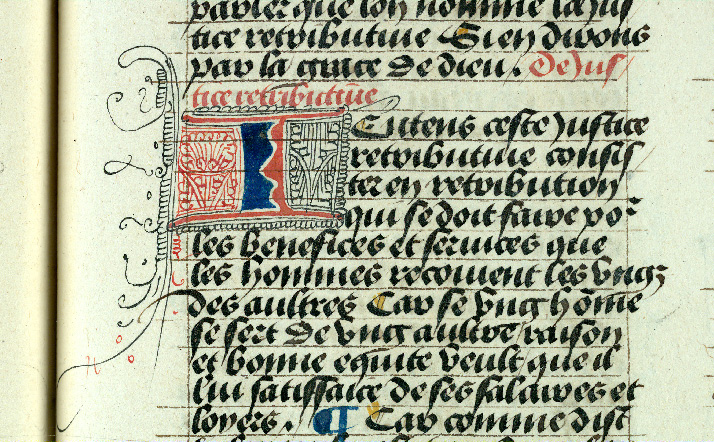 parler que lon nomme la jus
tice retributiue Si en dirons
par la grace de dieu. De jus
tice retributiue
I Entens ceste justice
retributiue consis
ter en retribution
qui se doit faire por
les benefices et seruices que
les hommes recoiuent les vngz
des aultres Car se vng hōme
se sert de vng aultre raison
et bonne equite veult que il
lui satisface de ses salaires et
loyers. ¶ Car comme dist